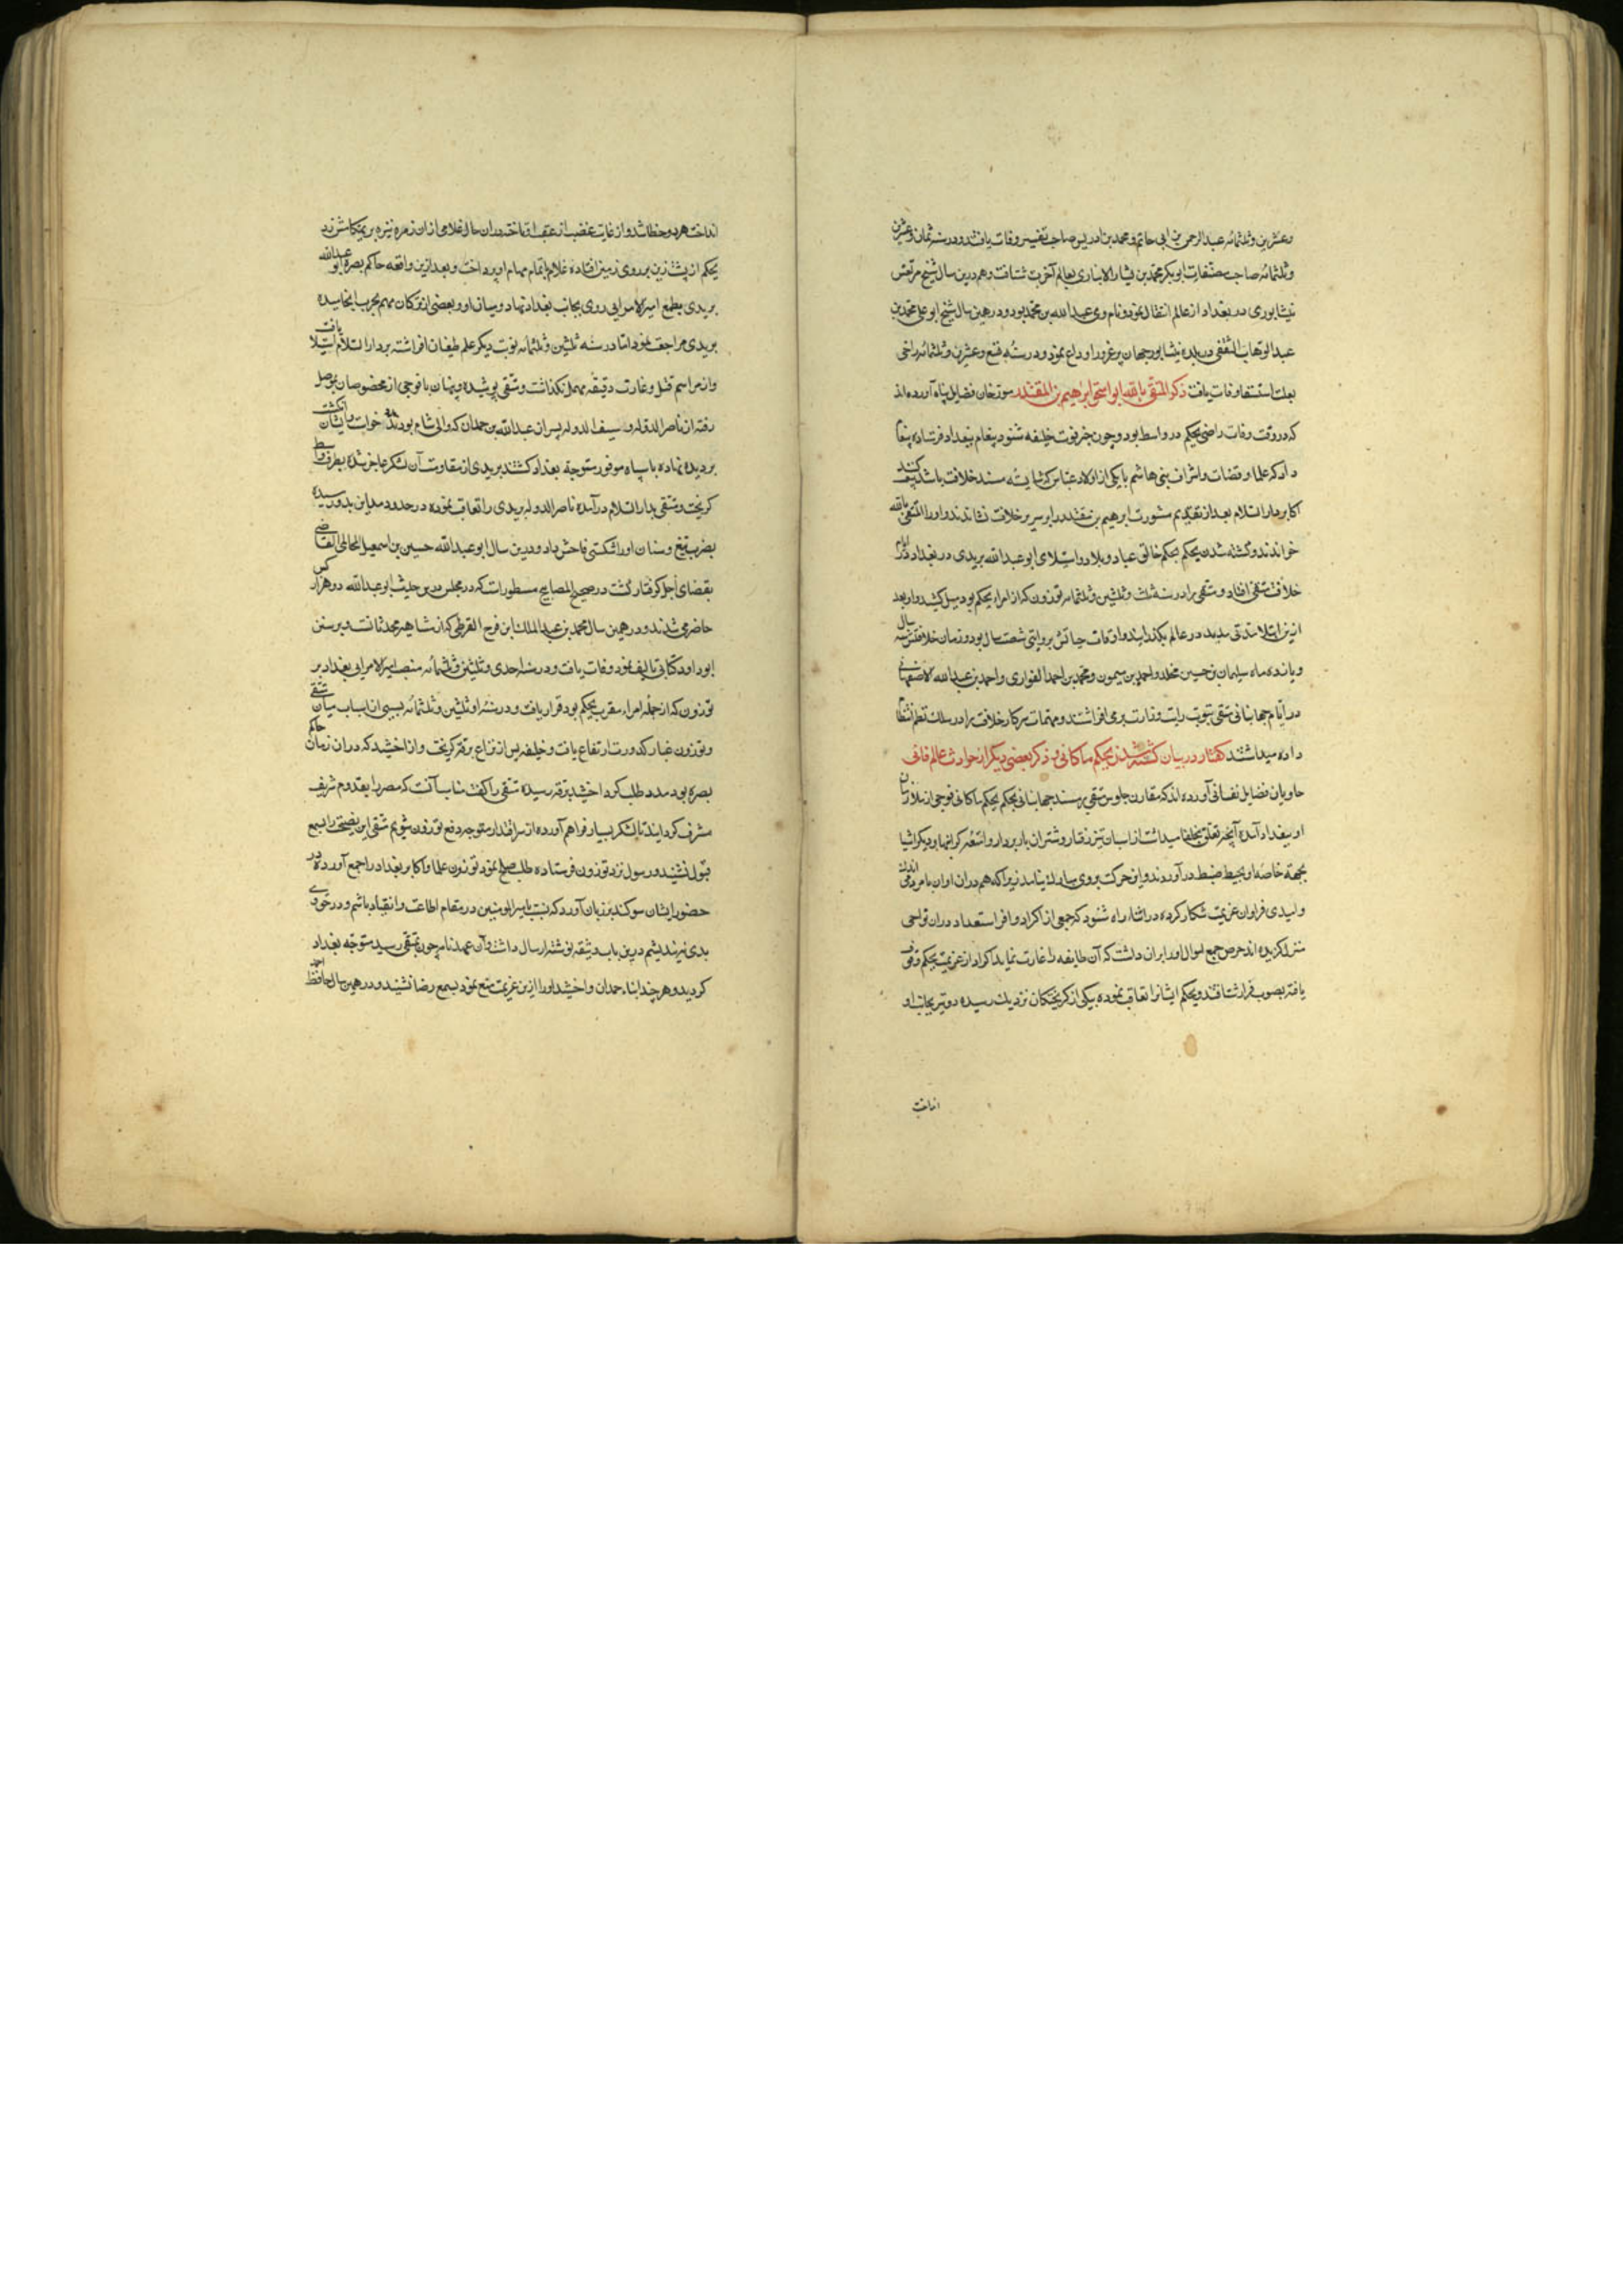 وعشرین وثلثمائه عبدالرحمن بن ابی حاتم و محمد بن ادریس صاحب تفسیر وفات یافتند و در سنه ثمان وعشرین
وثلثمائه صاحب مصنفات ابو بکر محمد بن بشار الانباری بعالم آخرت شتافت و هم درین سال شیخ مرتعش
نیشابوری در بغداد از عالم انتقال نمود و نام وی عبدالله بن محمد بود و در همین سال شیخ ابو علی محمد بن
عبدالوهاب الثقفی در بلده نیشابور جهان پر غرور را وداع نمود و در سنه تسع وعشرین وثلثمائه راضی
بعلت استسقا وفات یافت ذکر المتقی بالله ابو اسحق ابرهیم بن المقتدر مورخان فضایل پناه آورده‌اند
که در وقت وفات راضی بجکم در واسط بود و چون خبر فوت خلیفه شنود پیغام ببغداد فرستاده پیغام
داد که علما و قضات و اشراف بنی هاشم با یکی از اولاد عباس که شایسته مسند خلافت باشد بیعت کنند
اکابر دار السلام بعد از تقدیم مشورت ابرهیم بن مقتدر را بر سریر خلافت نشاندند و او را المتقی بالله
خواندند و کشته شدن بجکم بحکم خالق عباد و بلاد و استیلای ابو عبدالله بریدی در بغداد در ایام
خلافت متقی افتاد و متقی را در سنه ثلث وثلثین وثلثمائه توزون که از امراء بجکم بود میل کشید و او بعد
ازین ابتلا مدتی مدید در عالم بگذرانید و اوقات حیاتش بروایتی شصت سال بود و زمان خلافتش سه سال
و یازده ماه سلیمان بن حسین مخلد و احمد بن میمون و محمد بن احمد القواری و احمد بن عبدالله الاصفهانی
در ایام جهانبانی متقی بنوبت رایت وزارت برمی‌افراشتند و مهمات سرکار خلافت را در سلک نظم انتظام
داده میداشتند گفتار در بیان کشته شدن بجکم ماکانی و ذکر بعضی دیگر از حوادث عالم فانی
حاویان فضایل نفسانی آورده‌اند که مقارن جلوس متقی بر مسند جهانبانی بحکم بجکم ماکانی فوجی از ملازمان
او ببغداد آمده آنچه تعلق بخلفا میداشت از اسبان تیز رفتار و شتران باربردار و امتعه گرانبها و دیگر اشیا
بجهة خاصه او بحیطه ضبط در آوردند و این حرکت بروی مبارک نیامد زیرا که هم در ان اوان با مردم اندک
ولیدی فراوان عزیمت شکار کرده در اثناء راه شنود که جمعی از اکراد وافر استعداد در ان نواحی
منزل گزیده‌اند حرص جمع اموال او را بران داشت که آن طایفه را غارت نماید اکراد از عزیمت بجکم وقوف
یافته بصوب فرار شتافتند و بجکم ایشانرا تعاقب نموده بیکی از گریختگان نزدیک رسیده دو تیر بجانب او
انداخت
انداخت هر دو خطا شد و از غایت غضب از عقب او تاخت در ان حال غلامی از ان زمره نیزه بر تهیکاهش زد
بجکم از پشت زین بر روی زمین افتاده غلام باتمام مهام او پرداخت و بعد ازین واقعه حاکم بصره ابو عبدالله
بریدی بطمع امیر الامرایی روی بجانب بغداد نهاد و میان او و بعضی از ترکان مهم بحرب انجامیده
بریدی مراجعت نمود اما در سنه ثلثین وثلثمائه نوبت دیگر علم طغیان افراشته بر دار السلام استیلا یافت
و از مراسم قتل و غارت دقیقه مهمل نگذاشت و متقی پوشیده و پنهان با فوجی از مخصوصان بموصل
رفته از ناصر الدوله و سیف الدوله پسران عبدالله بن حمدان که والی شام بودند مدد خواست و ایشان انگشت
بر دیده نهاده با سپاه موفور متوجه بغداد گشتند بریدی از مقاومت آن لشکر عاجز شده بطرف واسط
گریخت و متقی بدار السلام در آمده ناصر الدوله بریدی را تعاقب نموده در حدود مداین بدو رسیده
بضرب تیغ و سنان او را شکستی فاحش داد و درین سال ابو عبدالله حسین بن اسمعیل المحاملی القاضی
بقضای اجل گرفتار گشت در صحیح المصابیح مسطور است که در مجلس درس حدیث ابو عبدالله دو هزار کس
حاضر می‌شدند و در همین سال محمد بن عبدالملک ابن فرج القرطبی که از مشاهیر محدثانست و بر سنن
ابو داود کتابی تالیف نمود وفات یافت و در سنه احدی وثلثین وثلثمائه منصب امیر الامرایی بغداد بر
توزون که از جمله امراء مقرب بجکم بود قرار یافت و در سنه اثنی وثلثین وثلثمائه بسببی از اسباب میان متقی
و توزون غبار کدورت ارتفاع یافت و خلیفه پس از نزاع برقه گریخت و از اخشید که در ان زمان حاکم
بصره بود مدد طلب کرد اخشید برقه رسیده متقی را گفت مناسب آنست که مصر را بقدوم شریف
مشرف گردانید تا لشکر بسیار فراهم آورده از سر اقتدار متوجه دفع توزون شویم متقی این نصیحت را بسمع
قبول نشنید و رسول نزد توزون فرستاده طلب صلح نمود توزون علما و اکابر بغداد را جمع آورده در
حضور ایشان سوگند بر زبان آورد که نسبت با امیر المومنین در مقام اطاعت و انقیاد باشم و در حق وی
بدی نیندیشم درین باب وثیقه نوشته ارسال داشت و آن عهدنامه چون بمتقی رسید متوجه بغداد
گردید و هر چند ابناء حمدان و اخشید او را ازین عزیمت منع نمود بسمع رضا نشنید و در همین سال حافظ احمد